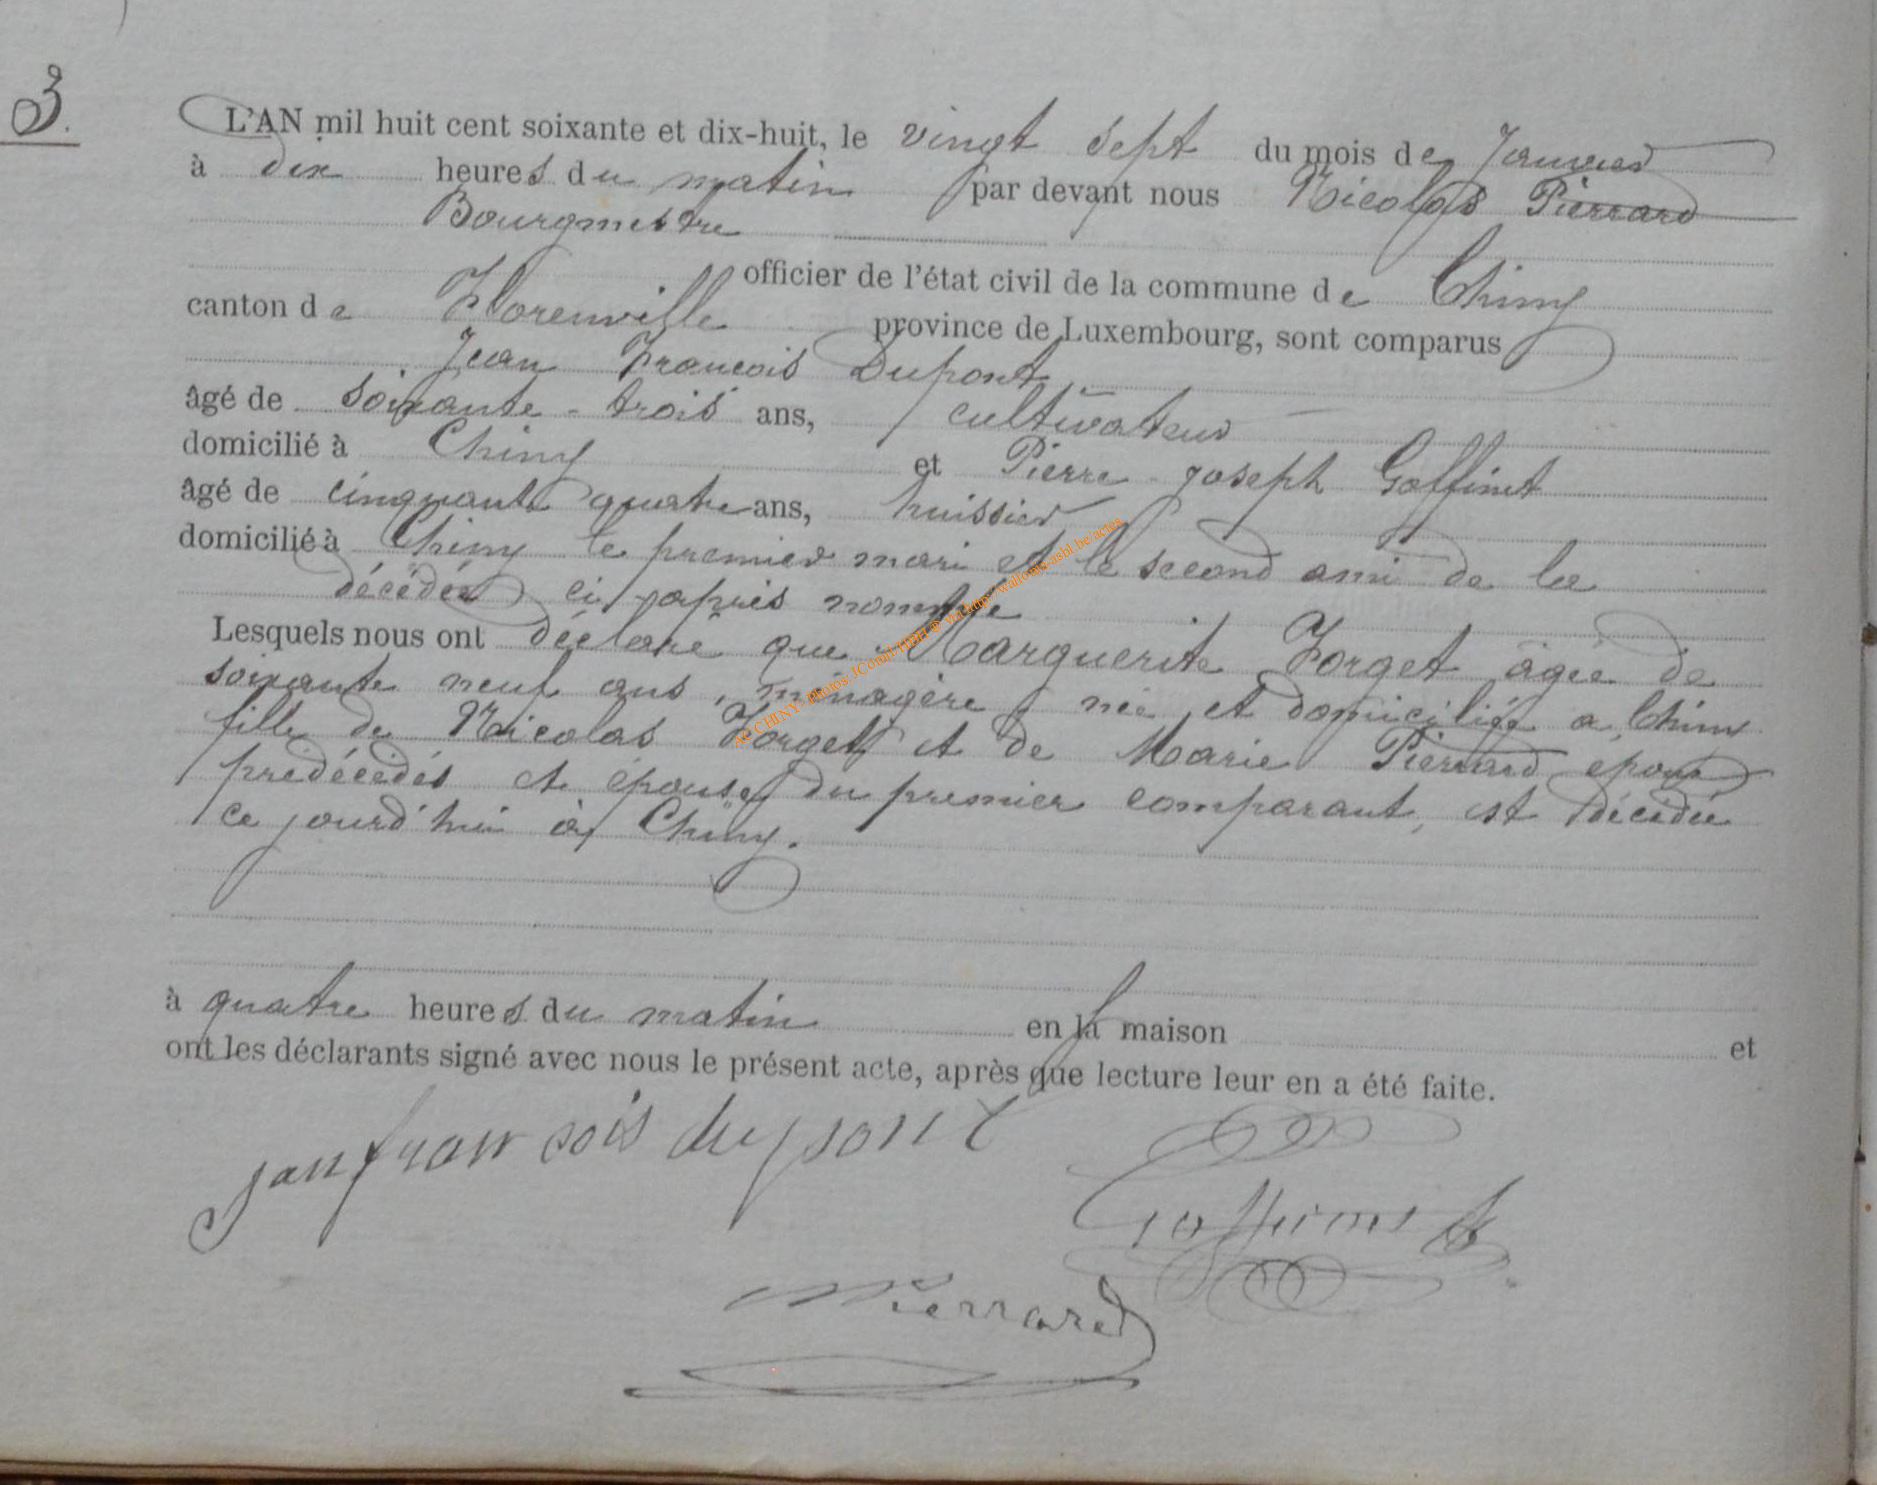 3.
L'AN mil huit cent soixante et dix-huit, le vingt sept du mois de Janvier
à dix heures du matin par devant nous Nicolas Pierrard
Bourgmestre
officier de l'état civil de la commune de Chiny
canton de Florenville province de Luxembourg, sont comparus
Jean François Dupont
âgé de soixante-trois ans, cultivateur
domicilié à Chiny et Pierre-Joseph Goffinet
âgé de cinquante quatre ans, huissier
domicilié à Chiny le premier mari et le second ami de la
décédée ci-après nommée
Lesquels nous ont déclaré que Marguerite Forget âgée de
soixante neuf ans, ménagère, née et domiciliée a Chiny
fille de Nicolas Forget et de Marie Pierrard epoux
prédécédés et épouse du premier comparant, est décédée
ce jourd'hui à Chiny.
à quatre heures du matin en la maison et
ont les déclarants signé avec nous le présent acte, après que lecture leur en a été faite.
jan fran cois dupont
Goffinet
NPierrard